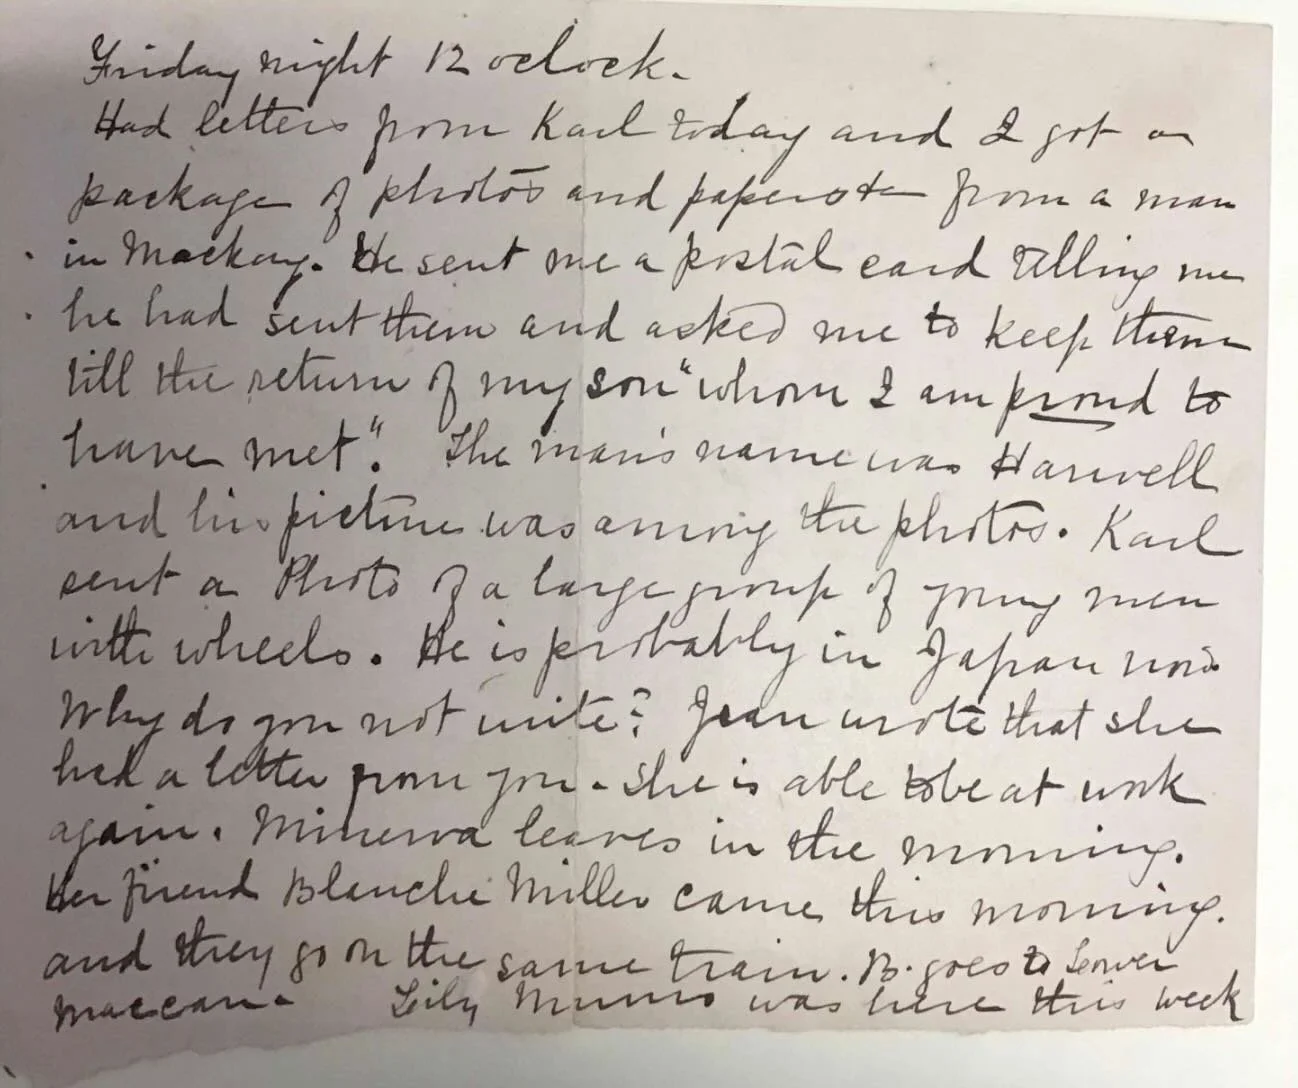 Friday night 12 oclock.
Had letters from Karl today and I got a
package of photos and papers &c from a man
in Mackay. He sent me a postal card telling me
he had sent them and asked me to keep them
till the return of my son "whom I am proud to
have met". The man's name was Harwell
and his picture was among the photos. Karl
sent a Photo of a large group of young men
with wheels. He is probably in Japan now.
Why do you not write? Jean wrote that she
had a letter from you. She is able to be at work
again. Minerva leaves in the morning.
Her friend Blanche Miller came this morning.
and they go on the same train. B. goes to Lower
Maccan. Lily Munro was here this week